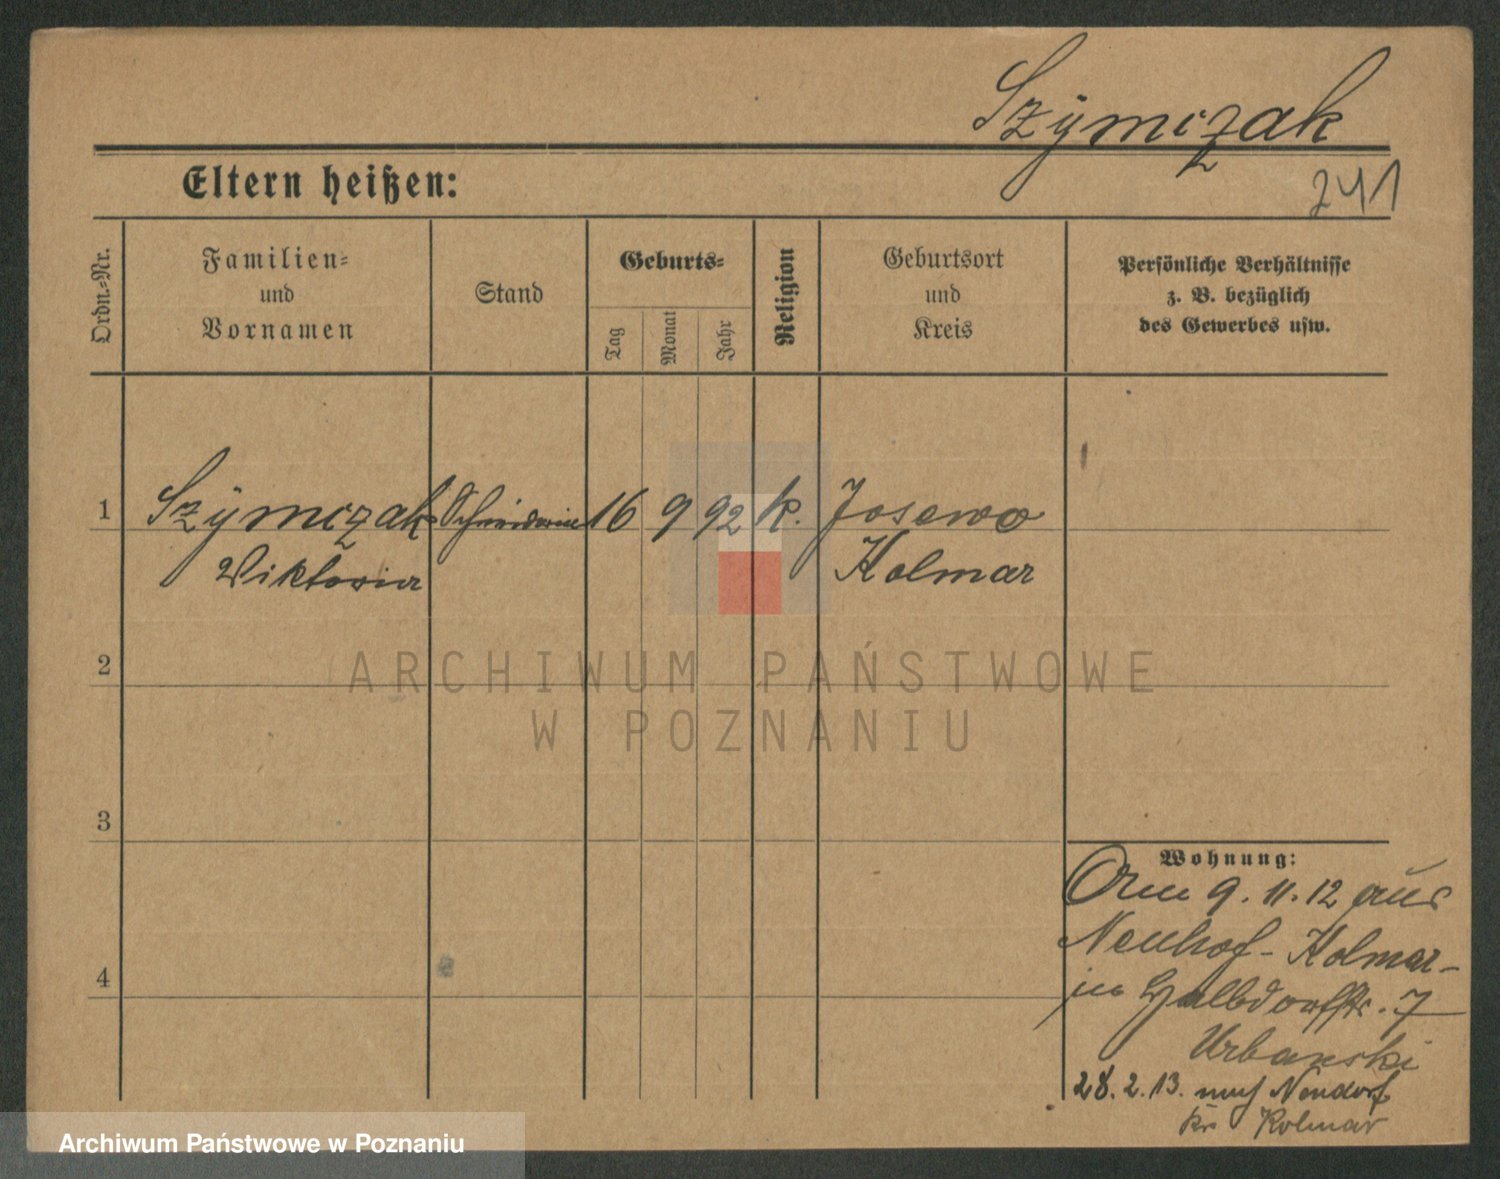 Szymczak
241
Eltern heißen:
Ordn.-Nr.
Familien-
und
Vornamen
Stand
Geburts-
Tag
Monat
Jahr
Religion
Geburtsort
und
Kreis
Persönliche Verhältnisse
z. B. bezüglich
des Gewerbes usw.
1 Szymczak Schneiderin 16 9 92 k. Josewo
Wiktoria Kolmar
2
3
4
Wohnung:
9. 11. 12 aus
Neuhof - Kolmar -
in Halbdorfstr. 7
Urbanski
28. 2. 13. nach Neudorf
Kr. Kolmar
ARCHIWUM PAŃSTWOWE
W POZNANIU
Archiwum Państwowe w Poznaniu